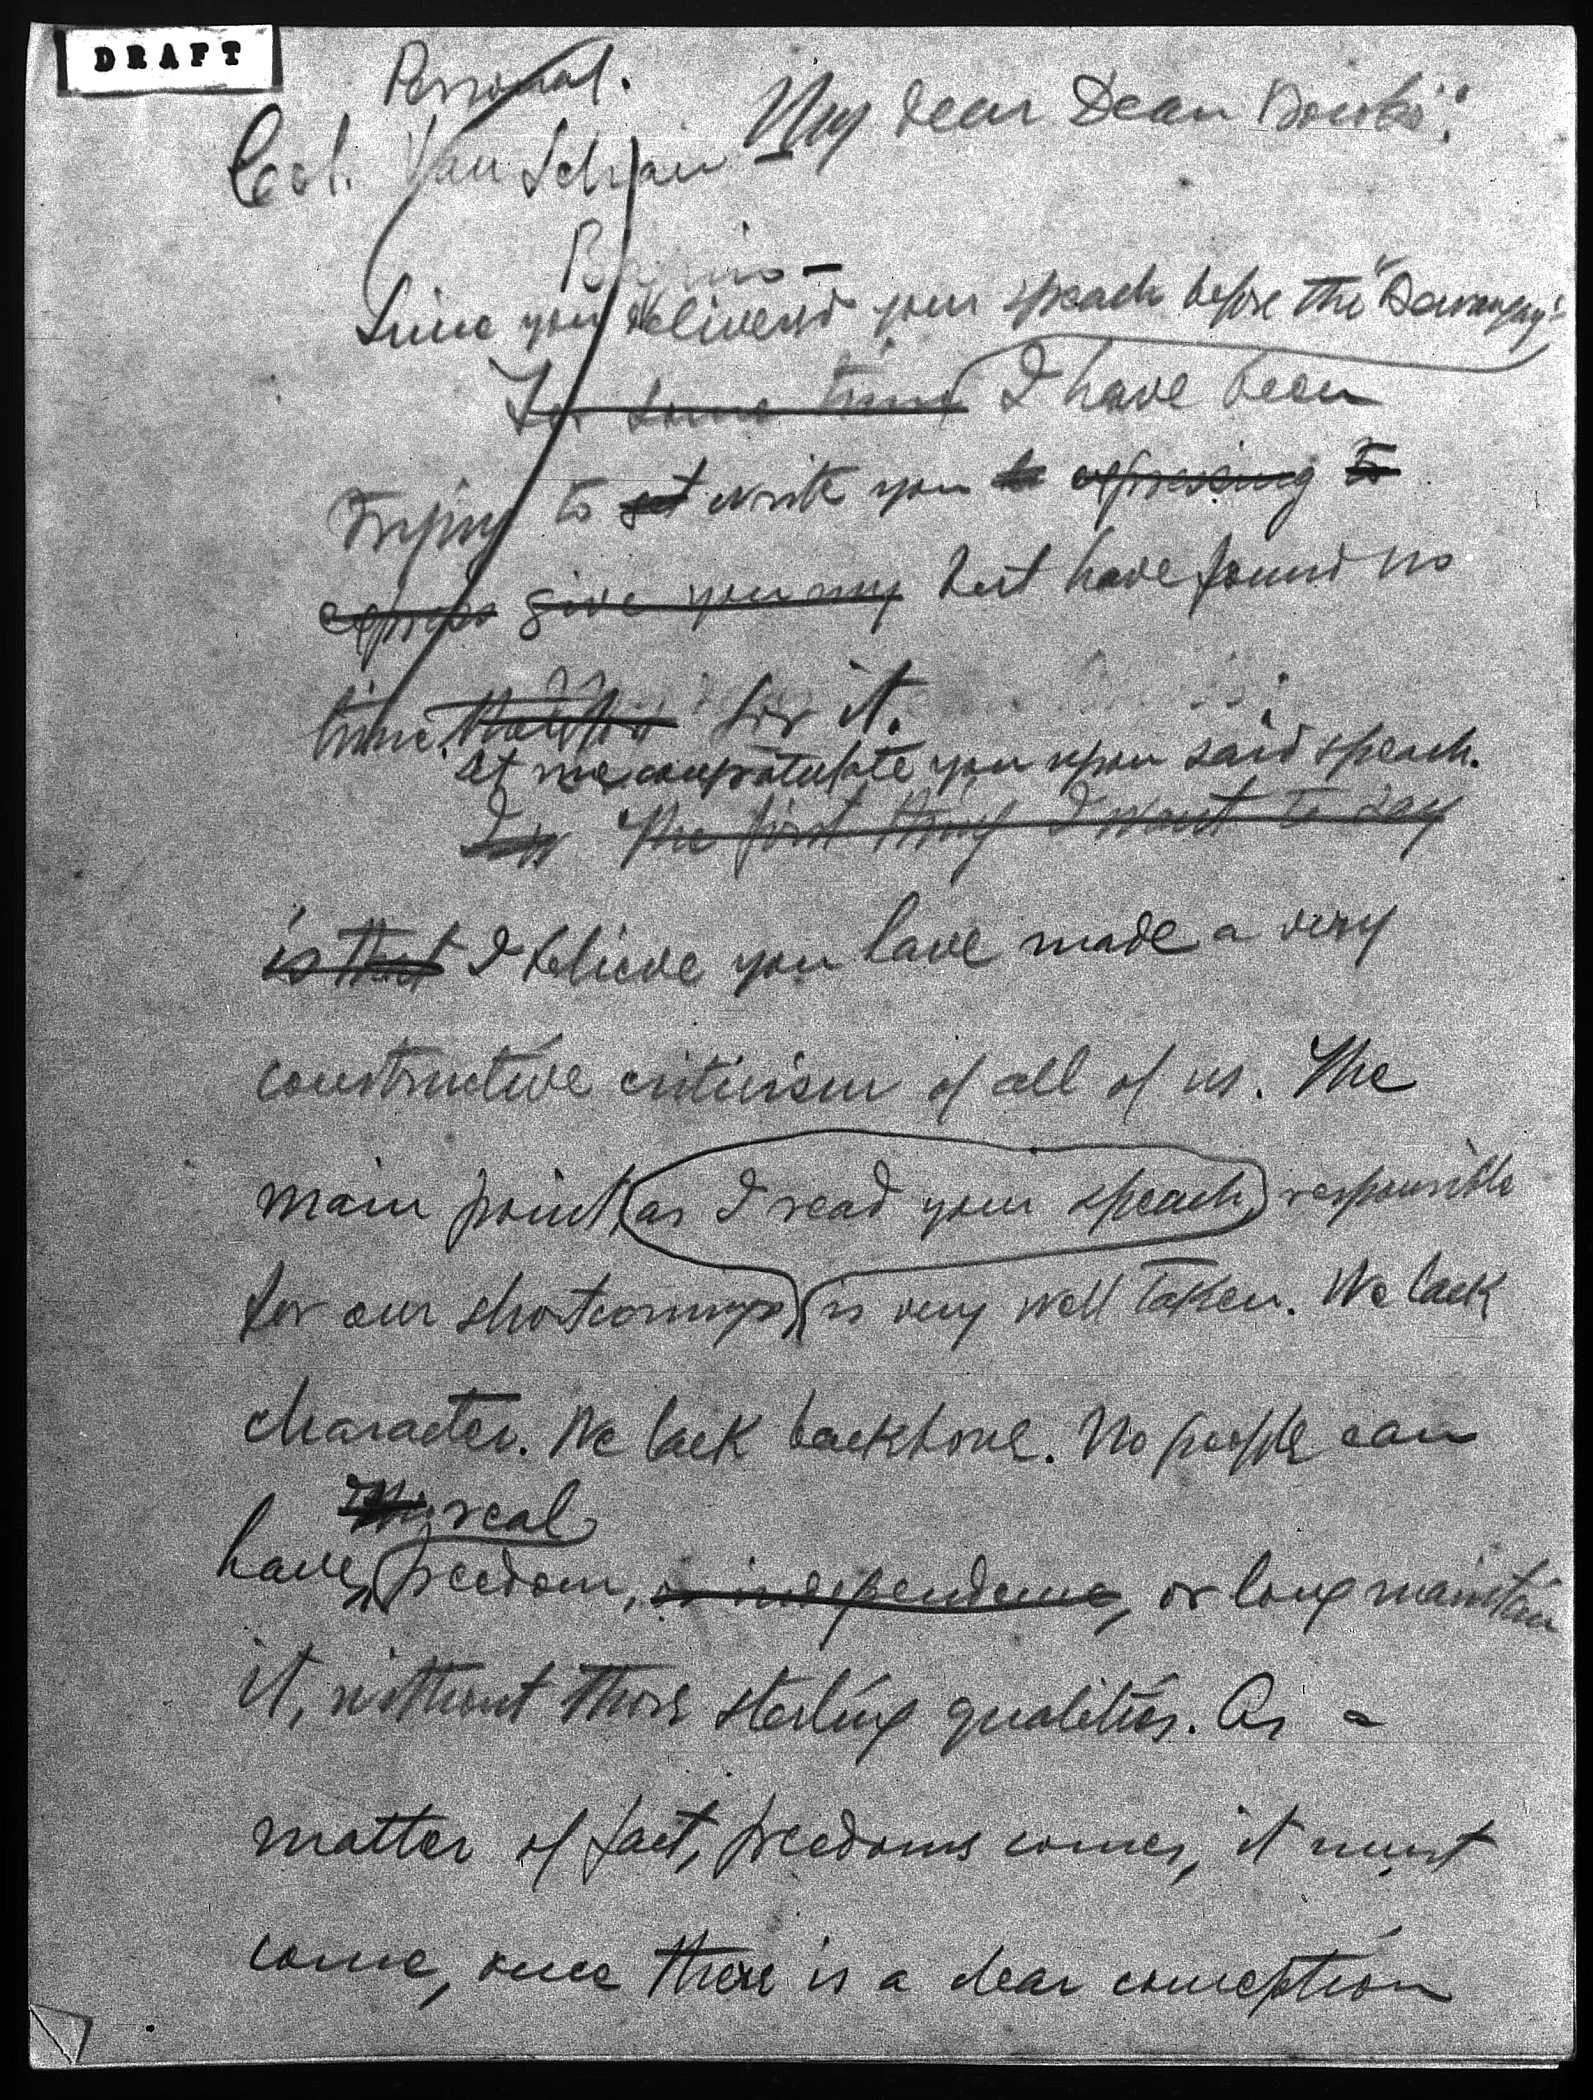 DRAFT
Personal.
My dear Dean Bocobo:
Col. Van Schaick
Since you delivered your speech before the "
For some time I have been
trying to get write you to expressing to
express give you my but have found no
time for it.
let me congratulate you upon said speech.
The first thing I want to say
is that I believe you have made a very
constructive criticism of all of us. The
main point, (as I read your speach) responsible
for our shortcomings, is very well taken. We lack
character. We lack backbone. No people can
real
have freedom, or independence, or long maintain
it, without those sterling qualities. As a
matter of fact, freedoms comes, it must
come, once there is a clear conception